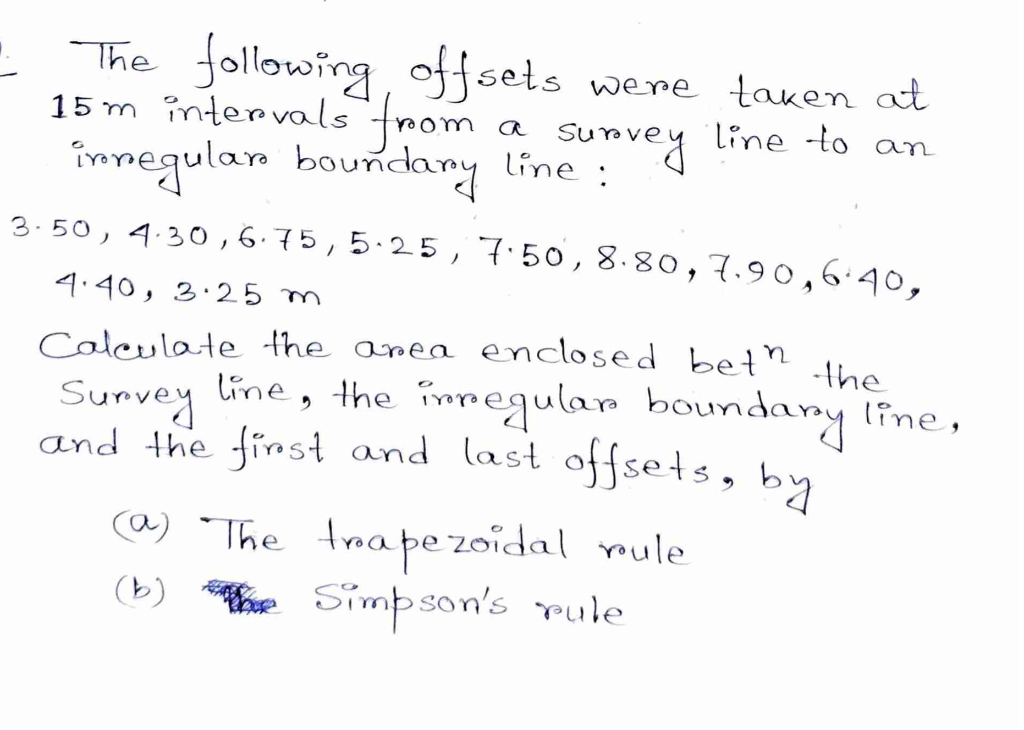 The following offsets were taken at
15 m intervals from a survey line to an
irregular boundary line :
3.50, 4.30, 6.75, 5.25, 7.50, 8.80, 7.90, 6.40,
4.40, 3.25 m
Calculate the area enclosed betn the
Survey line, the irregular boundary line,
and the first and last offsets, by
(a) The trapezoidal rule
(b) Simpson's rule